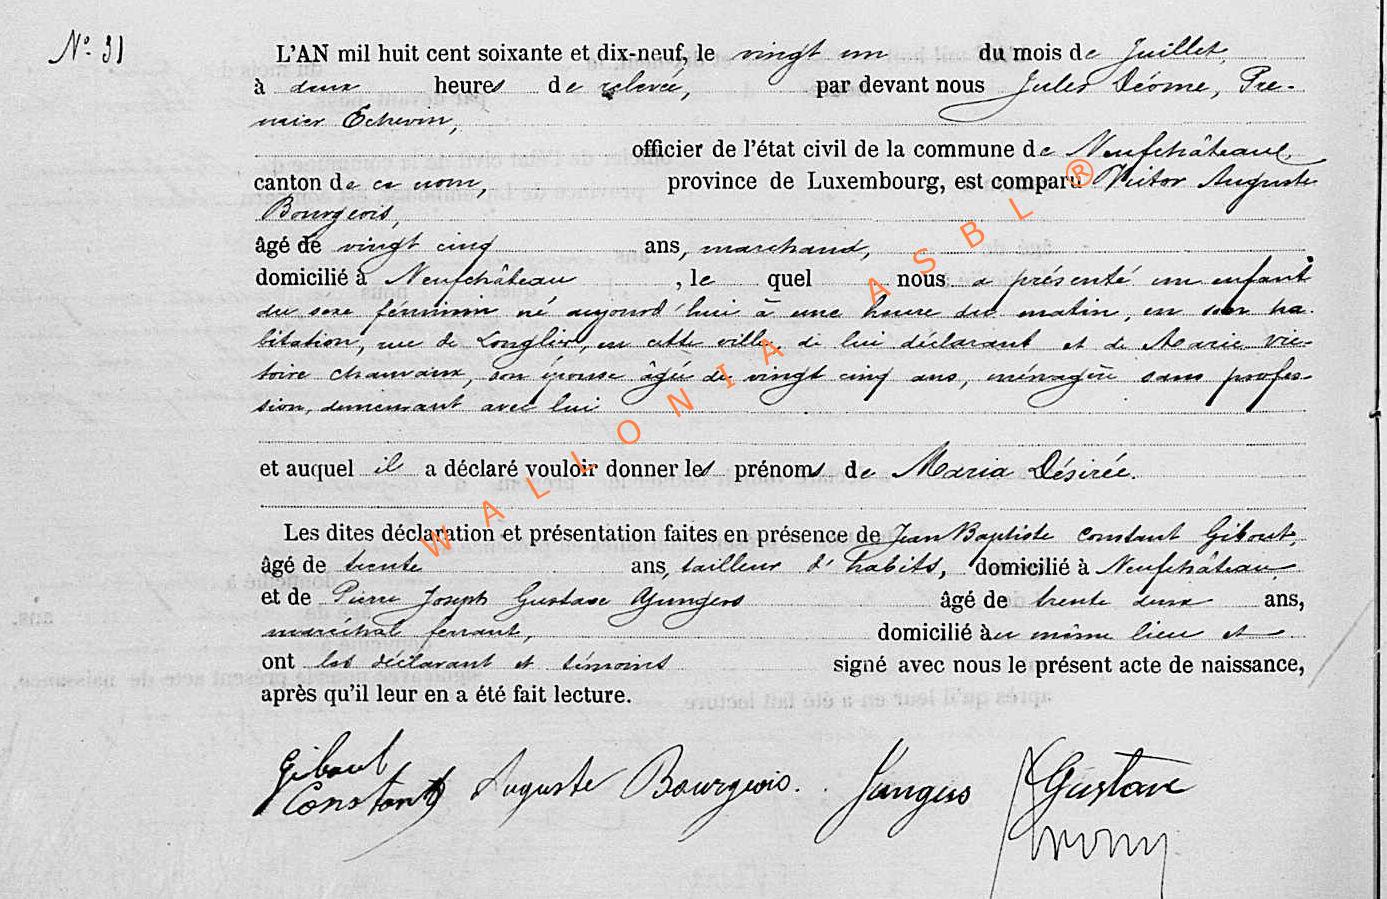 N° 31
L'AN mil huit cent soixante et dix-neuf, le vingt un du mois de Juillet,
à deux heures de relevée, par devant nous Jules Déome, Pre-
mier Echevin,
officier de l'état civil de la commune de Neufchâteau,
canton de ce nom, province de Luxembourg, est comparu Victor Auguste
Bourgeois,
âgé de vingt cinq ans, marchand,
domicilié à Neufchâteau, le quel nous a présenté un enfant
du sexe féminin né aujourd'hui à une heure du matin, en son ha-
bitation, rue de Longlier, en cette ville, de lui déclarant et de Marie Vic-
toire Chauvaux, son épouse âgée de vingt cinq ans, ménagère sans profes-
sion, demeurant avec lui
et auquel il a déclaré vouloir donner les prénoms de Maria Désirée.
Les dites déclaration et présentation faites en présence de Jean Baptiste Constant Gibout,
âgé de trente ans, tailleur d'habits, domicilié à Neufchâteau,
et de Pierre Joseph Gustave Yungers âgé de trente deux ans,
maréchal ferrant, domicilié au même lieu et
ont les déclarant et témoins signé avec nous le présent acte de naissance,
après qu'il leur en a été fait lecture.
Gibout Constant Auguste Bourgeois. Jungers Gustave
WALLONIA ASBL ®